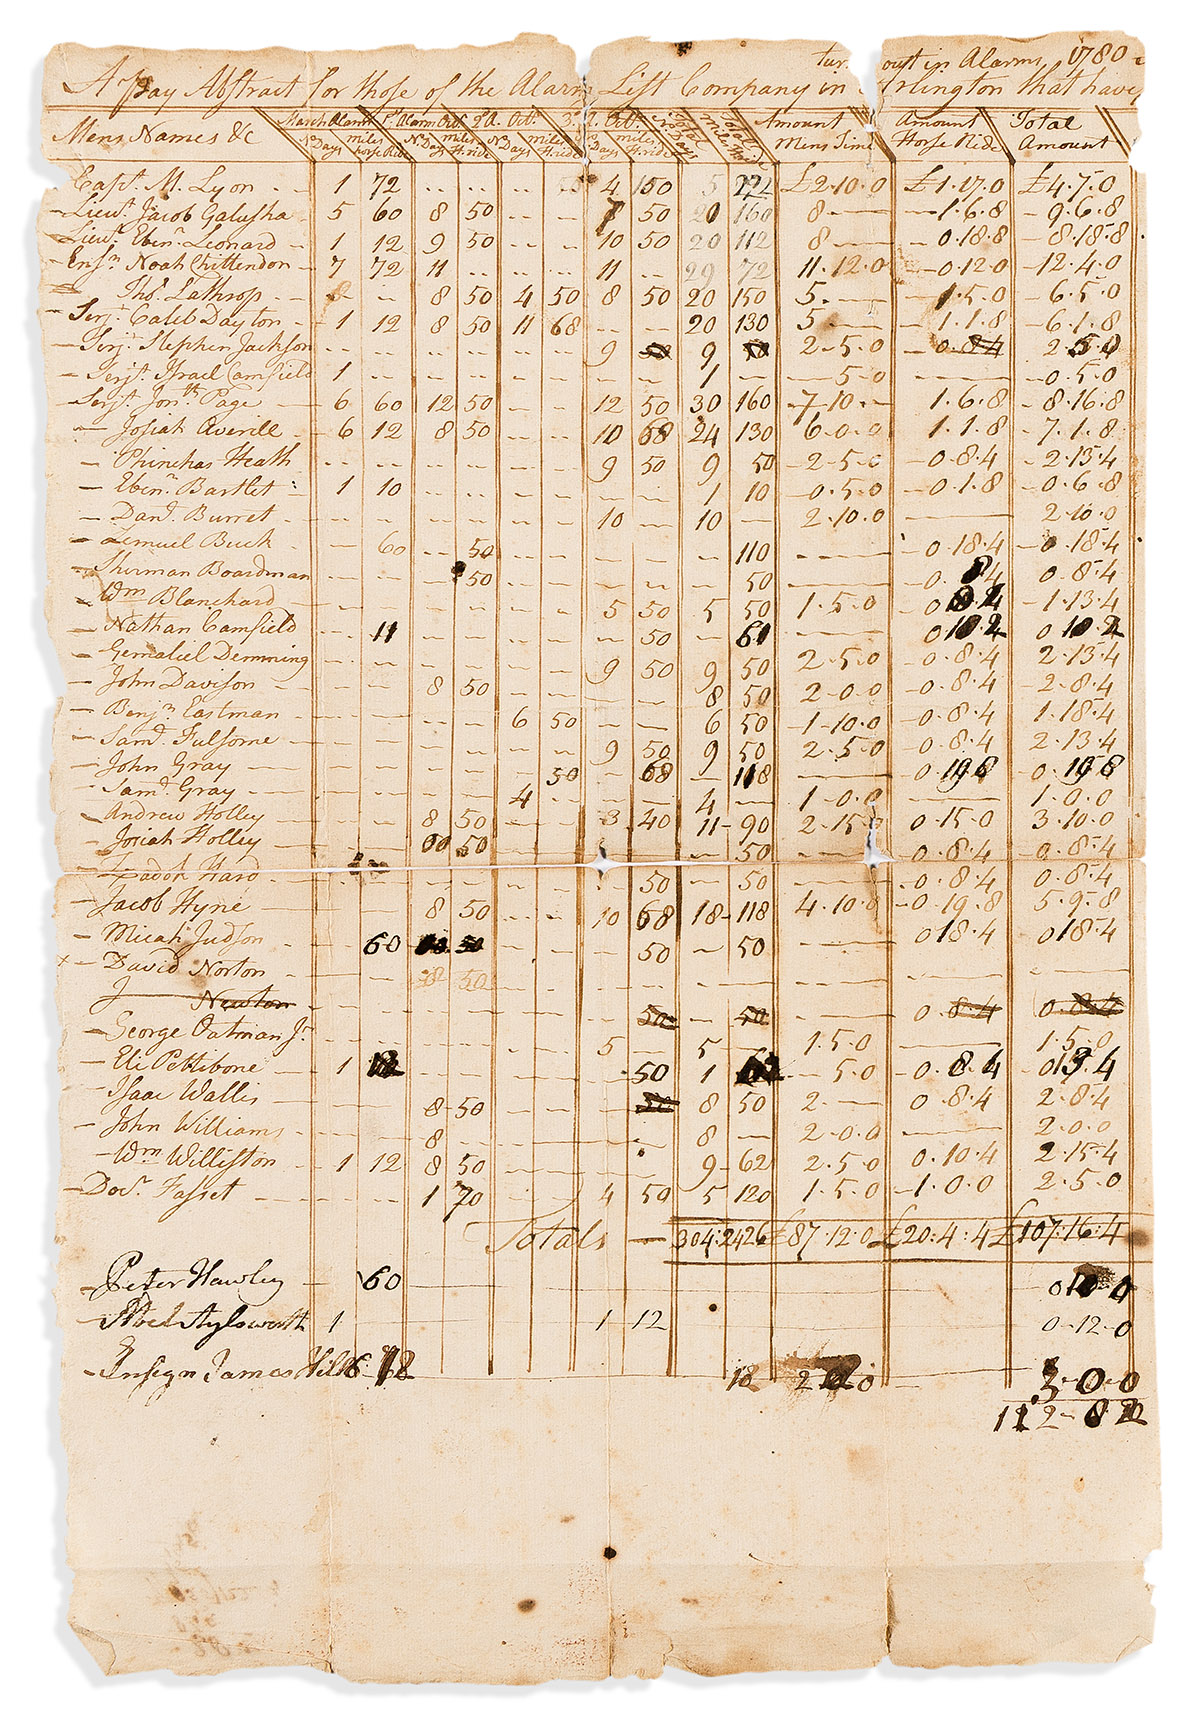 turn out in Alarms 1780
A Pay Abstract for those of the Alarm List Company in Arlington that have
March Alarm 1st Alarm Octr. 2d A. Octr. 3d A. Octr.
Mens Names &c No Days miles horse Ride No. Days miles H. ride No Days miles H. ride No. Days miles H. ride Total Days Total Miles Ride Amount Mens Time Amount Horse Ride Total Amount
Capt. M. Lyon 1 72 4 150 5 222 £2.10.0 £1.17.0 £4.7.0
Lieut. Jacob Galusha 5 60 8 50 7 50 20 160 8 1.6.8 9.6.8
Lieut. Ebenr. Leonard 1 12 9 50 10 50 20 112 8 0.18.8 8.18.8
Ensn. Noah Chittendon 7 72 11 11 29 72 11.12.0 0.12.0 12.4.0
Tho. Lathrop 8 50 4 50 8 50 20 150 5 1.5.0 6.5.0
Serjt. Caleb Dayton 1 12 8 50 11 68 20 130 5 1.1.8 6.1.8
Serjt. Stephen Jackson 9 50 9 50 2-5.0 0.8.4 2.5.0
Serjt. Israel Camfield 1 1 5.0 0.5.0
Serjt. Jonth. Page 6 60 12 50 12 50 30 160 7-10 1.6.8 8.16.8
Josiah Averill 6 12 8 50 10 68 24 130 6.0.0 1.1.8 7.1.8
Phinehas Heath 9 50 9 50 2-5.0 0.8.4 2.13.4
Ebenr. Bartlet 1 10 1 10 0.5.0 0.1.8 0.6.8
Danl. Burret 10 10 2.10.0 2.10.0
Lemuel Buck 60 50 110 0.18.4 0.18.4
Sherman Boardman 50 50 0.8.4 0.8.4
Wm Blanchard 5 50 5 50 1.5.0 0.8.4 1.13.4
Nathan Camfield 11 50 61 0 10.2 0 10.2
Gemaliel Demming 9 50 9 50 2.5.0 0.8.4 2.13.4
John Davison 8 50 8 50 2.0.0 0.8.4 2.8.4
Benjn. Eastman 6 50 6 50 1.10.0 0.8.4 1.18.4
Saml. Fulsome 9 50 9 50 2.5.0 0.8.4 2.13.4
John Gray 50 68 118 0.19.8 0.19.8
Saml. Gray 4 4 1.0.0 1.0.0
Andrew Holley 8 50 3 40 11 90 2.15.0 0.15.0 3.10.0
Josiah Holley 50 50 0.8.4 0.8.4
Zadok Hard 50 50 0.8.4 0.8.4
Jacob Hyne 8 50 10 68 18 118 4.10.0 0.19.8 5.9.8
Micah Judson 60 50 50 0 18.4 0 18.4
David Norton 8 50
J Newton 50 50 0 8.4 0.8.4
George Oatman Jr. 5 5 1.5.0 1.5.0
Eli Pettibone 1 12 50 1 5.0 0.8.4 0 13.4
Isaac Wallis 8 50 50 8 50 2 0 8.4 2.8.4
John Williams 8 8 2.0.0 2.0.0
Wm Williston 1 12 8 50 9 62 2.5.0 0.10.4 2.15.4
Doct. Fasset 1 70 4 50 5 120 1.5.0 1.0.0 2.5.0
Totals 304:2426 £87.12.0 £20:4:4 £107:16:4
Peter Hawley 60 0 10.0
Abel Aylsworth 1 1 12 0-12-0
Ensign James Hill 6 18 18 2 0 0 3.0.0
112-8